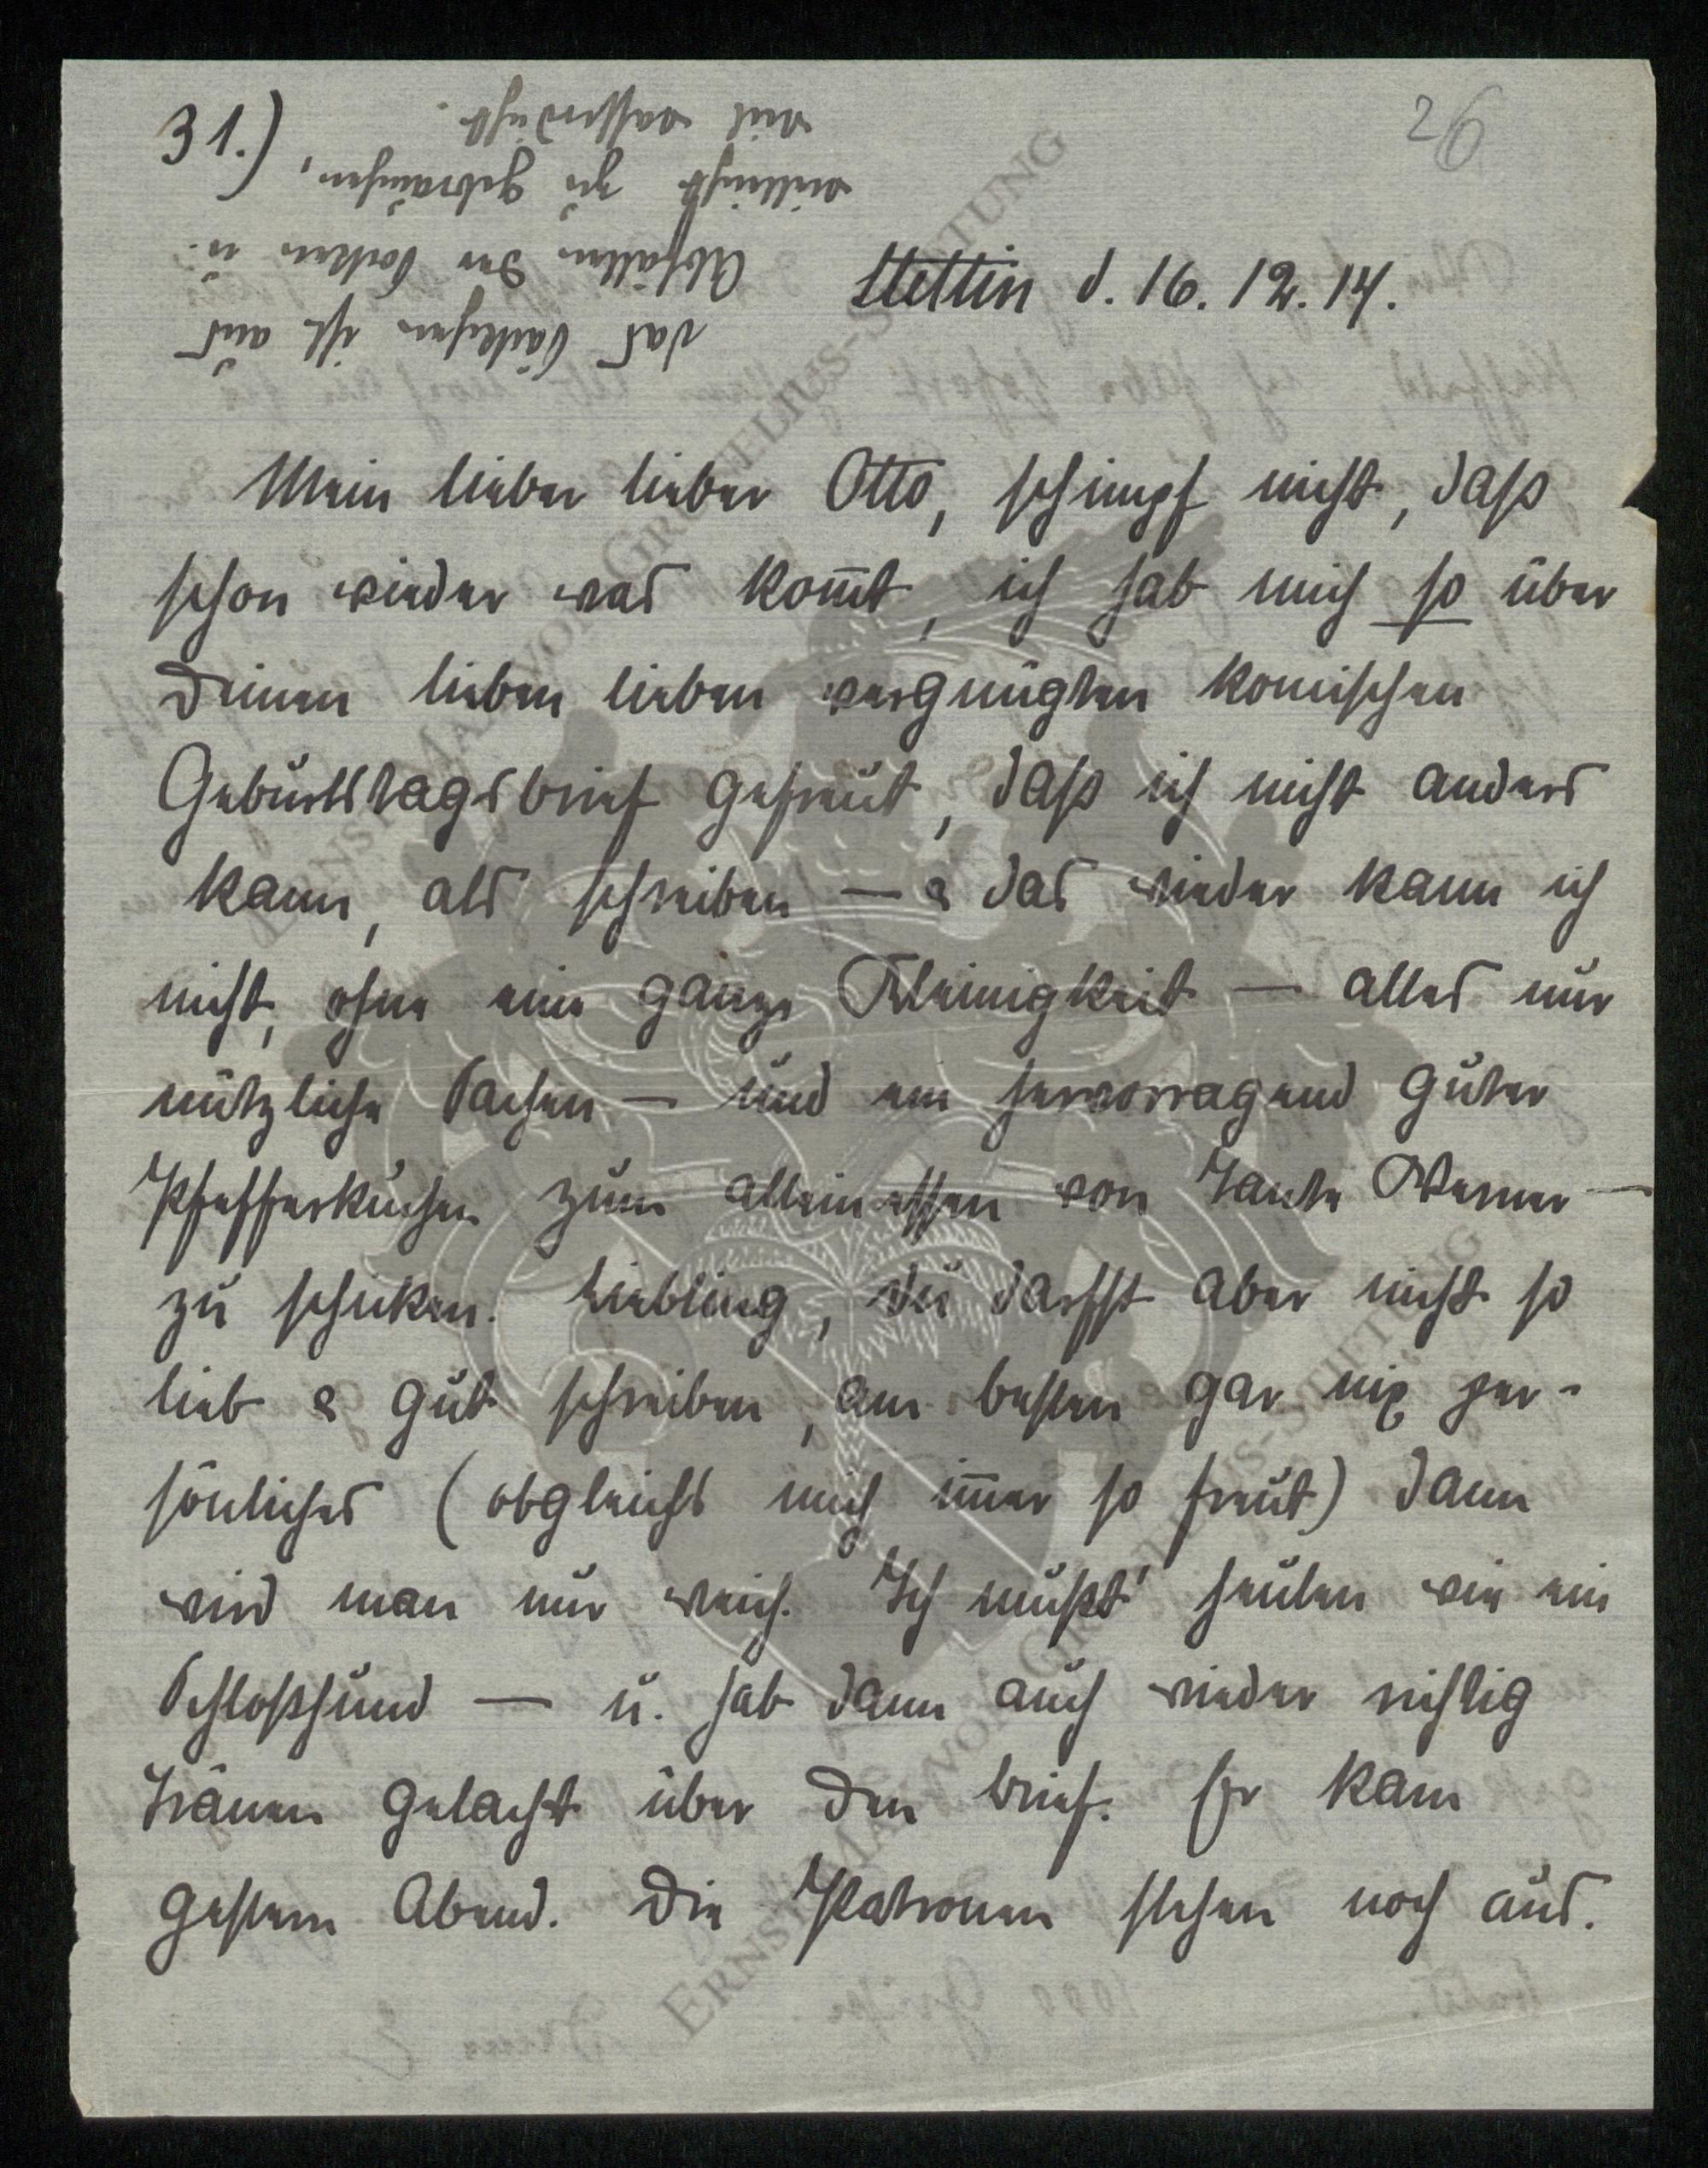 31.)
26
Stettin d. 16. 12. 14.
Mein lieber lieber Otto, schimpf nicht, daß
schon wieder was kom̄t, ich hab mich so über
Deinen lieben lieben vergnügten komischen
Geburtstagsbrief gefreut, daß ich nicht anders
kann, als schreiben — & das wieder kann ich
nicht, ohne eine ganze Kleinigkeit — alles nur
nützliche Sachen — und ein hervorragend guter
Pfefferkuchen zum alleinessen von Tante Werner —
zu schicken. Liebling, du darfst aber nicht so
lieb & gut schreiben, am besten gar nix per-
sönliches (obgleichs mich im̄er so freut) dann
wird man nur weich. Ich mußt' heulen wie ein
Schloßhund — u. hab dann auch wieder richtig
Tränen gelacht über den Brief. Er kam
gestern Abend. Die Patronen stehen noch aus.
das Päckchen ist aus
Abfällen der u.
vielleicht zu gebrauchen,
weil wasserdicht.
ERNST MARVOR GROTHELIUS-STIFTUNG
ERNST MARVOR GROTHELIUS-STIFTUNG